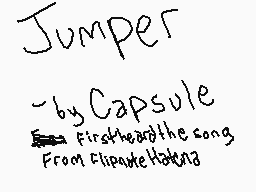 Jumper
-by Capsule
First heard the song
From Flipnote Hatena